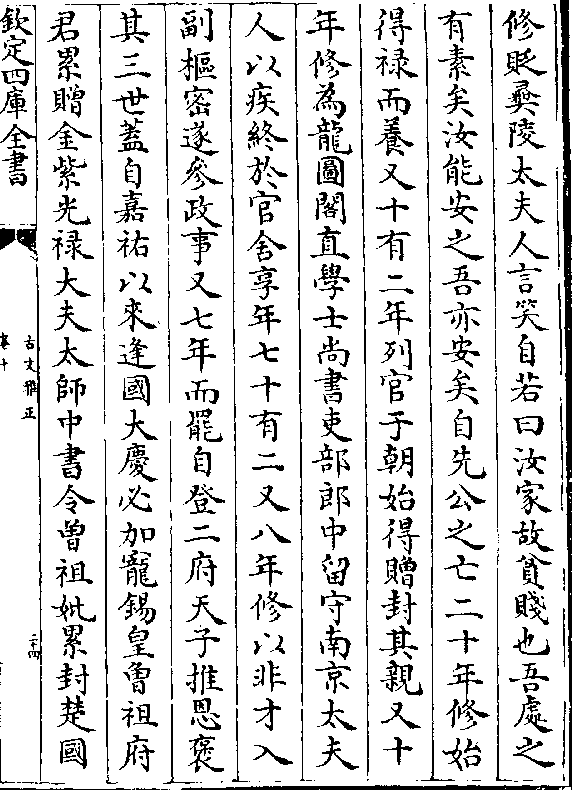 修貶彞陵太夫人言笑自若曰汝家故貧賤也吾處之
有素矣汝能安之吾亦安矣自先公之亡二十年修始
得禄而養又十有二年列官于朝始得贈封其親又十
年修為龍圖閣直學士尚書吏部郎中留守南京太夫
人以疾終於官舍享年七十有二又八年修以非才入
副樞密遂參政事又七年而罷自登二府天子推恩褒
其三世葢自嘉祐以來逢國大慶必加寵錫皇曽祖府
君累贈金紫光禄大夫太師中書令曽祖妣累封楚國
欽定四庫全書
古文雅正
卷十
二十四